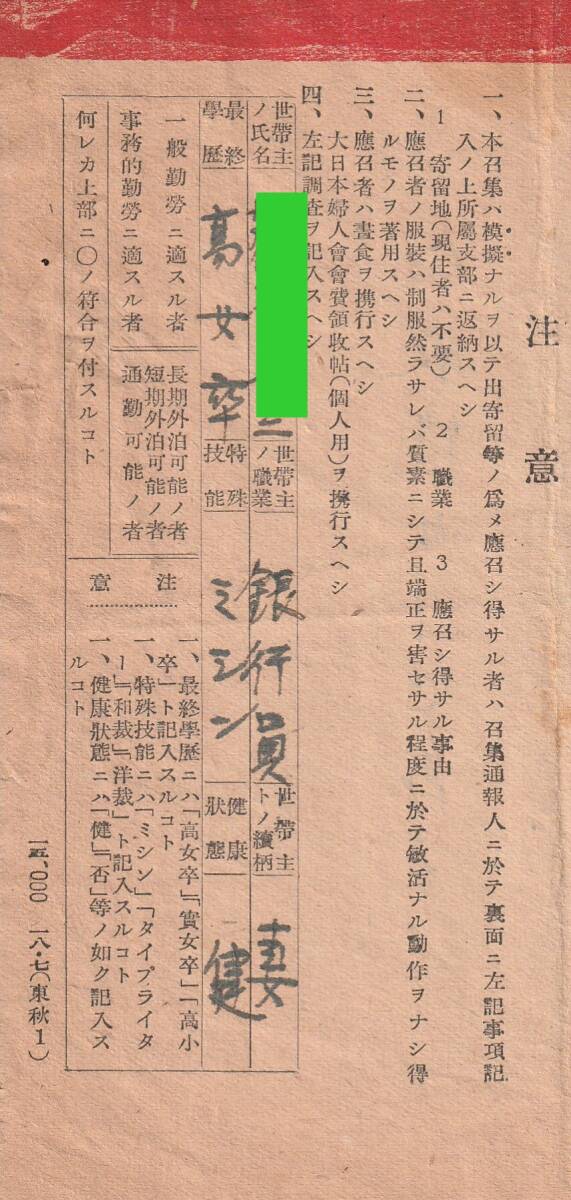 注意
一、本召集ハ模擬ナルヲ以テ出寄留等ノ爲メ應召シ得サル者ハ召集通報人ニ於テ裏面ニ左記事項記
入ノ上所屬支部ニ返納スヘシ
1 寄留地(現住者ハ不要) 2 職業 3 應召シ得サル事由
二、應召者ノ服裝ハ制服然ラサレバ質素ニシテ且端正ヲ害セサル程度ニ於テ敏活ナル動作ヲナシ得
ルモノヲ著用スヘシ
三、應召者ハ晝食ヲ携行スヘシ
大日本婦人會會費領收帖(個人用)ヲ携行スヘシ
四、左記調査ヲ記入スヘシ
世帶主ノ氏名
世帶主ノ職業
銀行員
世帶主トノ續柄
妻
最終學歷
高女卒
特殊技能
ミシン
健康狀態
健
一般勤勞ニ適スル者
事務的勤勞ニ適スル者
長期外泊可能ノ者
短期外泊可能ノ者
通勤可能ノ者
何レカ上部ニ〇ノ符合ヲ付スルコト
注意
一、最終學歷ニハ「高女卒」「實女卒」「高小
卒」ト記入スルコト
一、特殊技能ニハ「ミシン」「タイプライタ
ー」「和裁」「洋裁」ト記入スルコト
一、健康狀態ニハ「健」「否」等ノ如ク記入ス
ルコト
一五、〇〇〇 一八・七(東秋1)